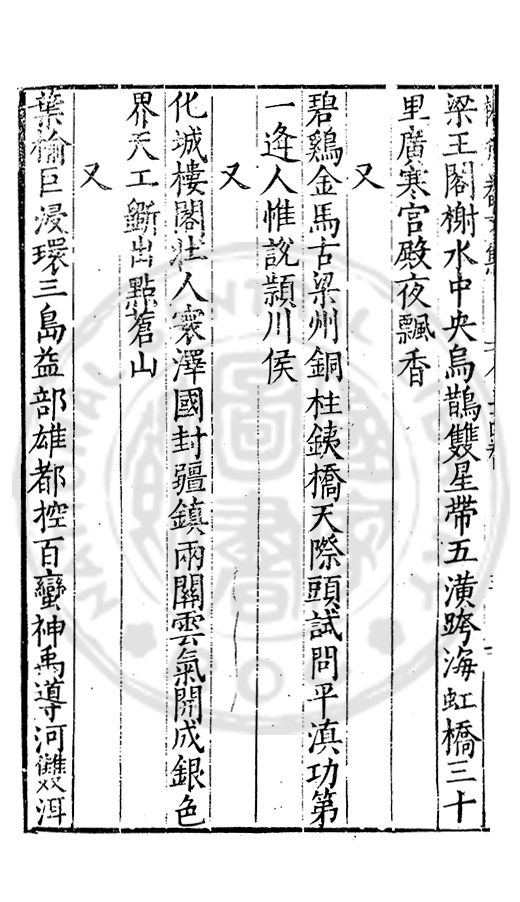 梁王閣榭水中央烏鵲雙星帶五潢跨海虹橋三十
里廣寒宮殿夜飄香
又
碧鷄金馬古梁州銅柱鉄橋天際頭試問平滇功第
一逄人惟說頴川侯
又
化城樓閣壯人寰澤國封疆鎮兩關雲氣開成銀色
界天工斵出點蒼山
又
葉榆巨浸環三島益部雄都控百蠻神禹導河雙洱